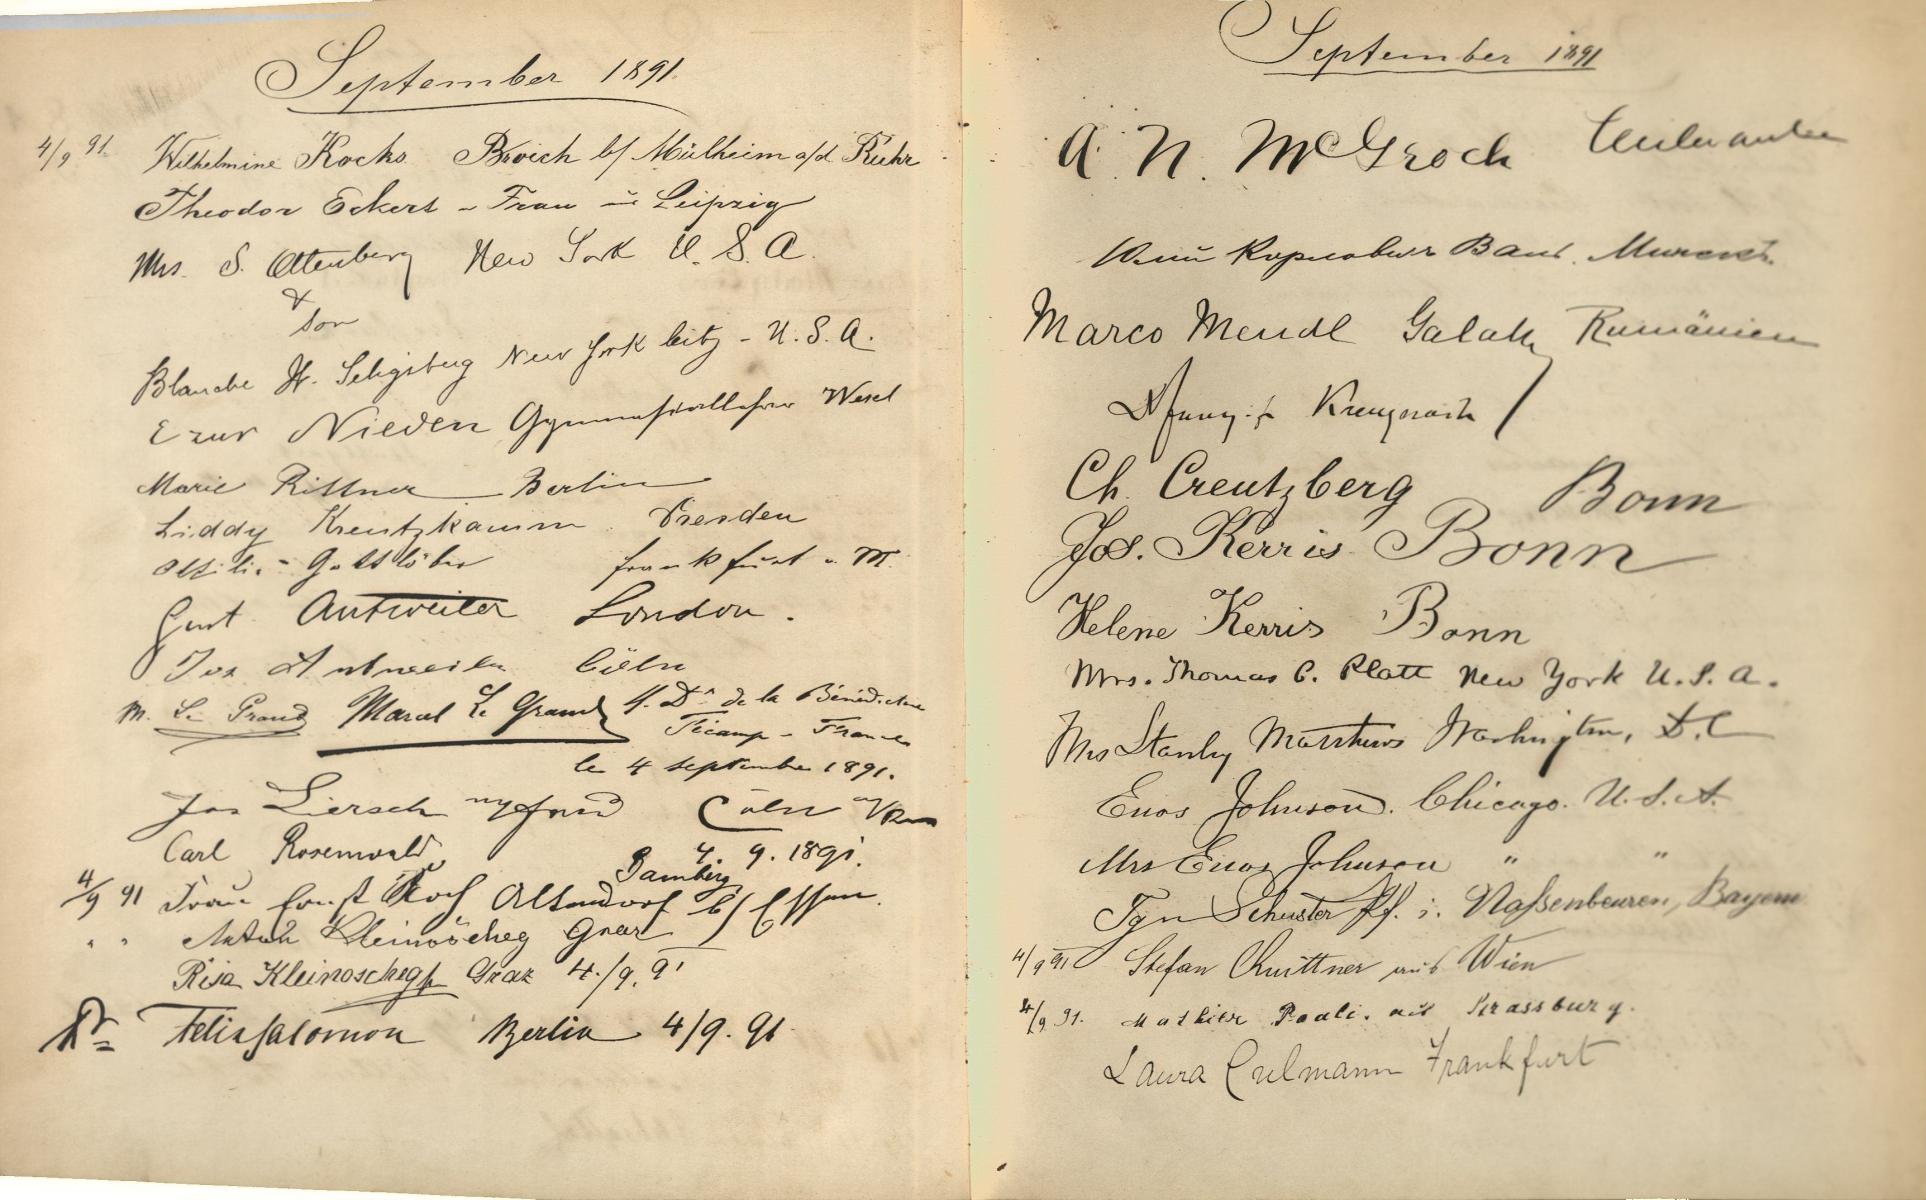 September 1891.
4/9 91. Wilhelmine Kocks Broich b/ Mülheim a/d Ruhr
Theodor Eckert Frau Leipzig
Mrs. S. Ottenberg New York U. S. A.
&
son
Blanche H. Seligsberg New York City - U. S. A.
E zur Nieden Gymnasiallehrer Wesel
Marie Rittner Berlin
Liddy Kreutzkamm. Dresden
Frankfurt a. M.
Gust. Antweiler London.
Jos Antweiler Cöln
M. Le Grand Marcel Le Grand de la Bénédictine
Fécamp - France
le 4 septembre 1891.
Jos Liersch Cöln a/Rhein
Carl Rosenwald, 4. 9. 1891.
Bamberg
4/9 91 Frau Ernst Koch Altendorf b/ Essen.
" " Kleinoscheg Graz
Risa Kleinoschegg Graz 4./9. 91
Dr Felix Salomon Berlin 4/9. 91.
September 1891
A. N. McGroch
Marco Mendl Galatz Rumänien
Kreuznach
Ch. Creutzberg Bonn
Jos. Kerris Bonn
Helene Kerris Bonn
Mrs. Thomas C. Platt New York U.S.A.
Mrs Stanly Matthews Washington, D.C
Enos Johnson. Chicago. U.S.A.
Mrs Enos Johnson " "
Schuster Pf. i. Naßenbeuren, Bayern
4/9 91 Stefan Quittner aus Wien
4/9 91. Mathier Pauli. aus Strassburg.
Laura Culmann Frankfurt